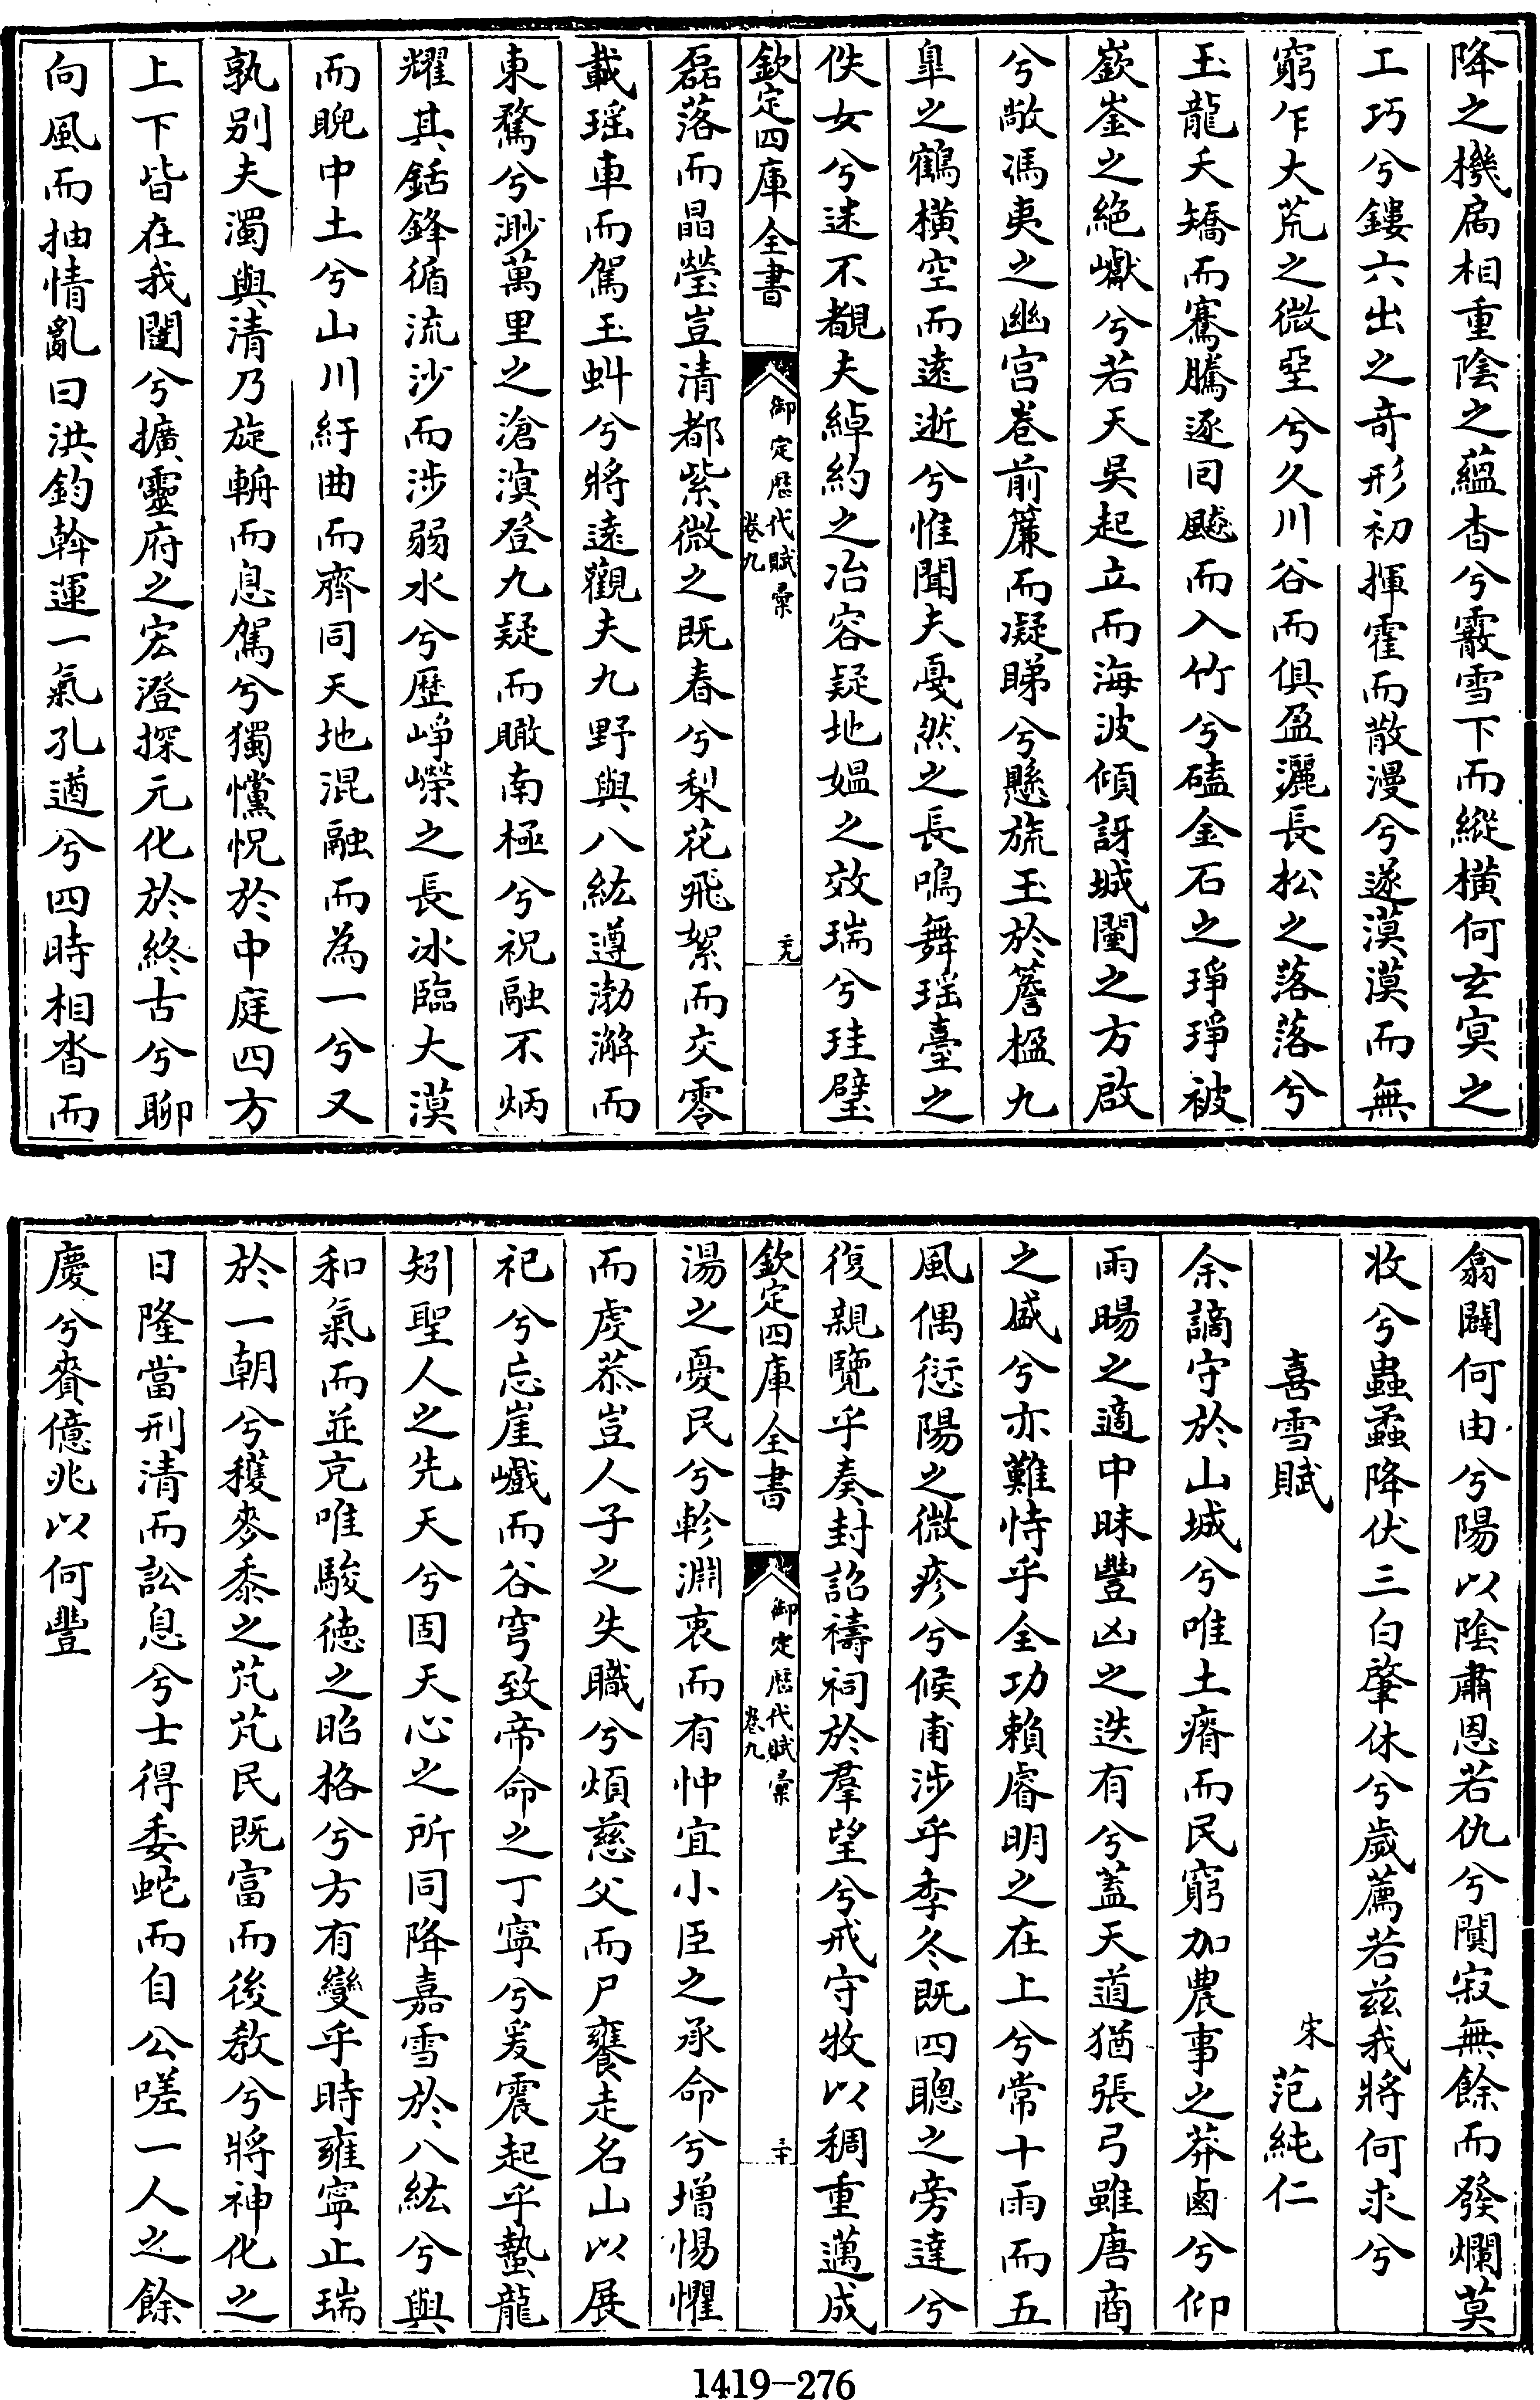 降之機扃相重陰之蘊杳兮霰雪下而縱橫何玄冥之
工巧兮鏤六出之奇形初揮霍而散漫兮遂漠漠而無
窮乍大荒之微堊兮久川谷而俱盈灑長松之落落兮
玉龍夭矯而騫騰逐囘飈而入竹兮磕金石之琤琤被
嶔崟之絶巘兮若天吴起立而海波傾訝城闉之方啟
兮敞馮夷之幽宫卷前簾而凝睇兮懸旒玉於簷楹九
臯之鶴橫空而遠逝兮惟聞夫戞然之長鳴舞瑶臺之
佚女兮迷不覩夫綽約之冶容疑地媪之效瑞兮珪璧
欽定四庫全書
御定歴代賦彙
卷九
二十九
磊落而晶瑩豈清都紫微之既春兮梨花飛絮而交零
載瑶車而駕玉虯兮將遠觀夫九野與八紘遵渤澥而
東騖兮渺萬里之滄溟登九疑而瞰南極兮祝融不炳
耀其銛鋒循流沙而涉弱水兮歴崢嶸之長冰臨大漠
而睨中土兮山川紆曲而齊同天地混融而為一兮又
孰别夫濁與清乃旋輈而息駕兮獨戃怳於中庭四方
上下皆在我闥兮擴靈府之宏澄探元化於終古兮聊
向風而抽情亂曰洪鈞斡運一氣孔遒兮四時相沓而
翕闢何由兮陽以陰肅恩若仇兮闃寂無餘而發爛莫
收兮蟲蝥降伏三白肇休兮歲薦若兹我將何求兮
喜雪賦
宋 范純仁
余謫守於山城兮唯土瘠而民窮加農事之莽鹵兮仰
雨暘之適中昧豐凶之迭有兮蓋天道猶張弓雖唐商
之盛兮亦難恃乎全功賴睿明之在上兮常十雨而五
風偶愆陽之微疹兮候甫涉乎季冬既四聰之旁達兮
復親覽乎奏封詔禱祠於羣望兮戒守牧以稠重邁成
欽定四庫全書
御定歴代賦彙
卷九
三十
湯之憂民兮軫淵衷而有忡宜小臣之承命兮增惕懼
而䖍恭豈人子之失職兮煩慈父而尸饔走名山以展
祀兮忘崖巇而谷穹致帝命之丁寧兮爰震起乎蟄龍
矧聖人之先天兮固天心之所同降嘉雪於八紘兮與
和氣而並充唯駿徳之昭格兮方有變乎時雍寧止瑞
於一朝兮穫麥黍之芃芃民既富而後教兮將神化之
日隆當刑清而訟息兮士得委蛇而自公嗟一人之餘
慶兮賚億兆以何豐
1419-276